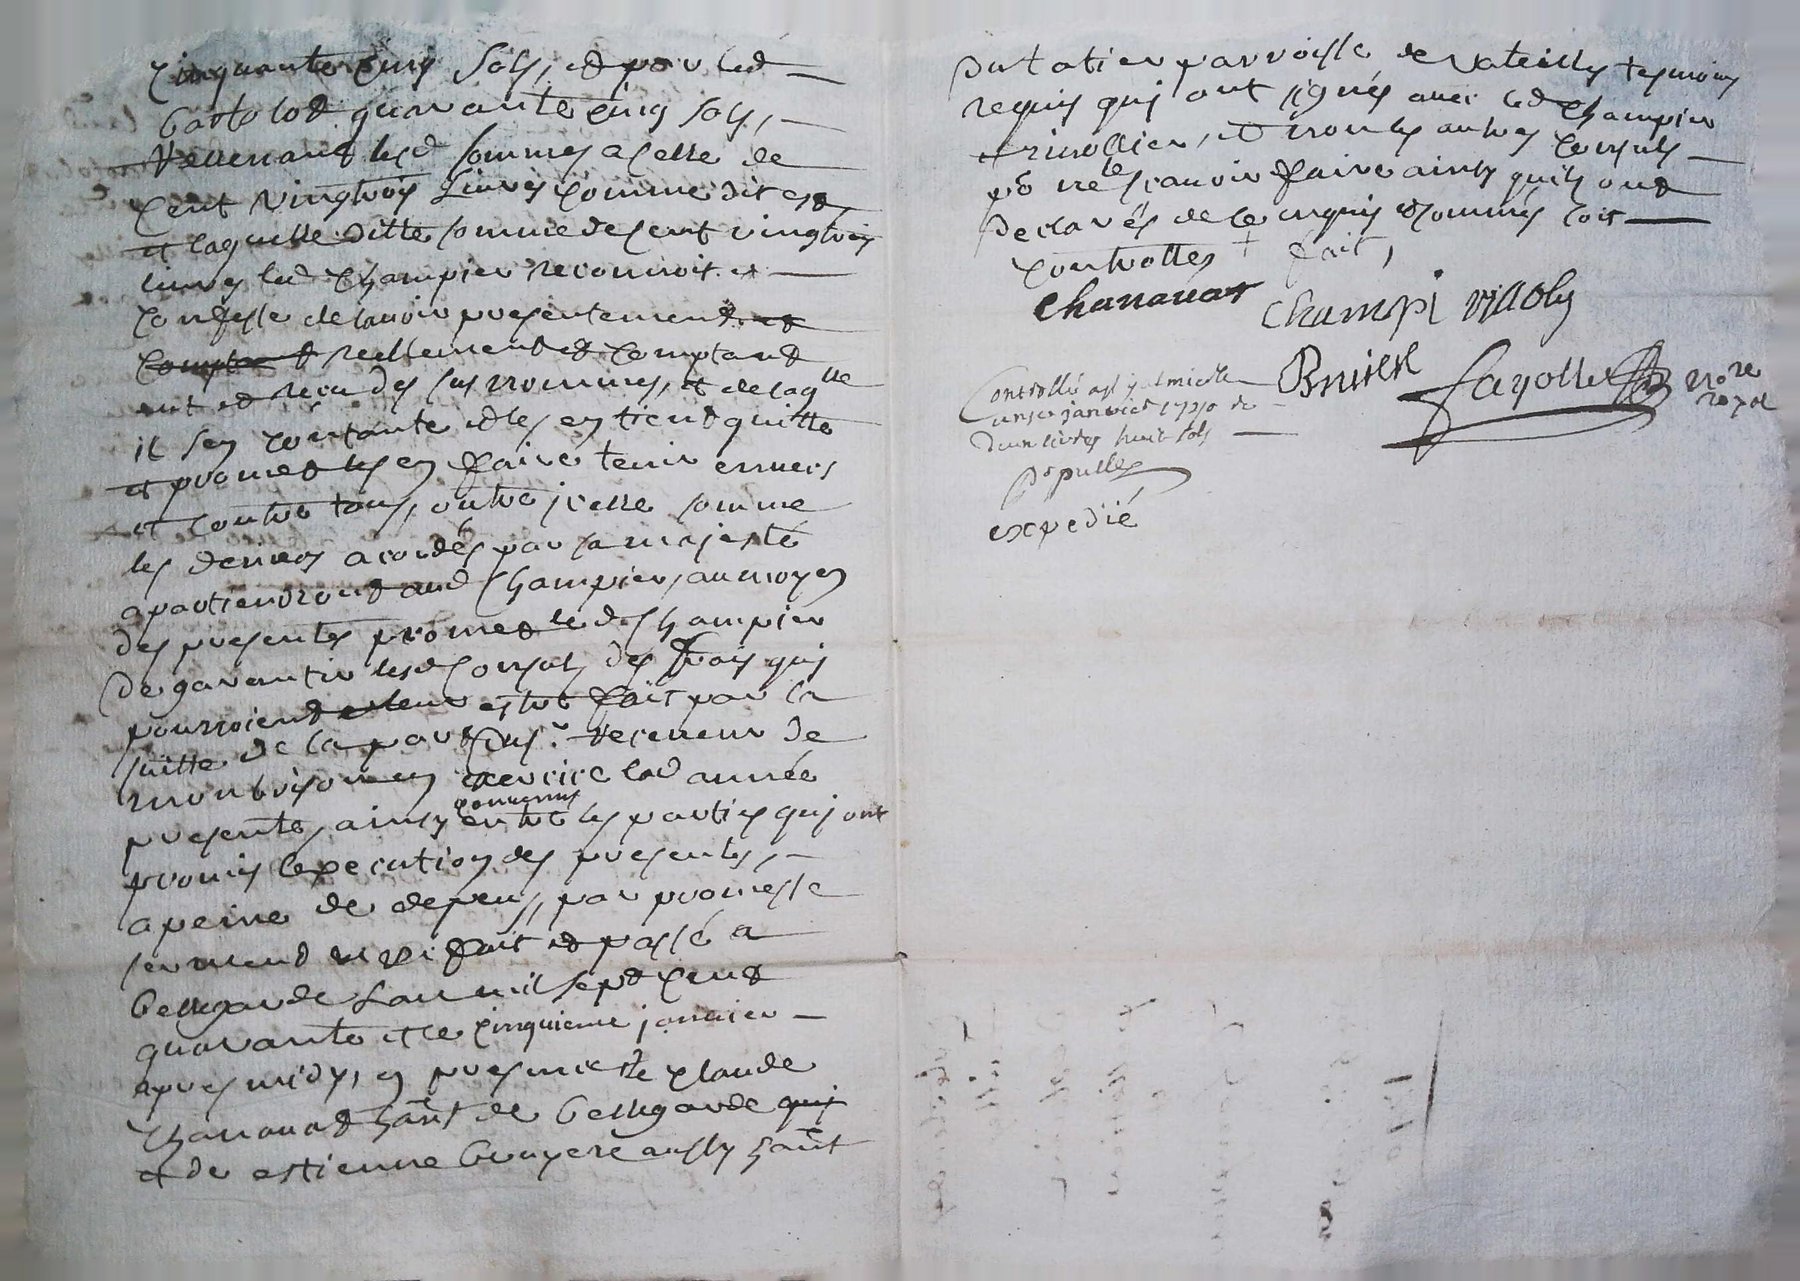 Cinquante cinq sols, et pour led
Bartolot quarante cinq sols,
Revenant lesd sommes a celle de
Cent vingtrois livres comme dit est
et laquelle ditte somme de cent vingtrois
livres led Champier reconnoit et
Confesse de lavoir presentement et
reellement et comptant
eut et receu des sus nommes, et de laqlle
il sen contante et les en tient quitte
et promet les en faire tenir envers
et contre tous, outre icelle somme
les deniers acordés par sa majesté
apartiendront aud Champier, au moyen
des presentes promet led Champier
de garantir lesd Consuls des frais qui
pourroient estre fait par la
suitte de la part du sr. Receveur de
montbrison en exercice lad année
presente, ainsy convenus entre les parties qui ont
promis lexecution des presentes,
a peine de depens, par promesse
serment et fait et passé a
Bellegarde Lan mil sept cent
quarante et le cinquieme janvier
apres midy, en presence de Claude
Chanavat hant de Bellegarde qui
et de estienne Bruyere aussy hant
du parroisse de tesmoins
requis qui ont signés avec led Champier
et , et non les autres Consuls
po ne le scavoir faire ainsy quils ont
declarés de ce enquis et sommés soit
Controlles + fait,
Chanavat
Champi
Fayolle nore royal
Controllé a
janvier
livres huit sols
expedié